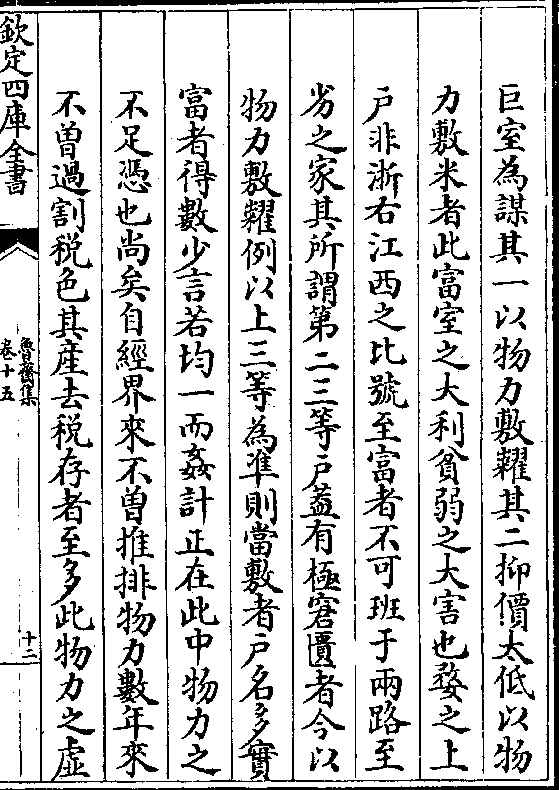 巨室為謀其一以物力敷糶其二抑價太低以物
力敷米者此富室之大利貧弱之大害也婺之上
戸非浙右江西之比號至富者不可班于兩路至
劣之家其所謂第二三等戸葢有極窘匱者今以
物力敷糶例以上三等為準則當敷者戸名多實
富者得數少言若均一而姦計正在此中物力之
不足憑也尚矣自經界來不曽推排物力數年來
不曽過割税色其産去税存者至多此物力之虛
欽定四庫全書
魯齋集
卷十五
十二